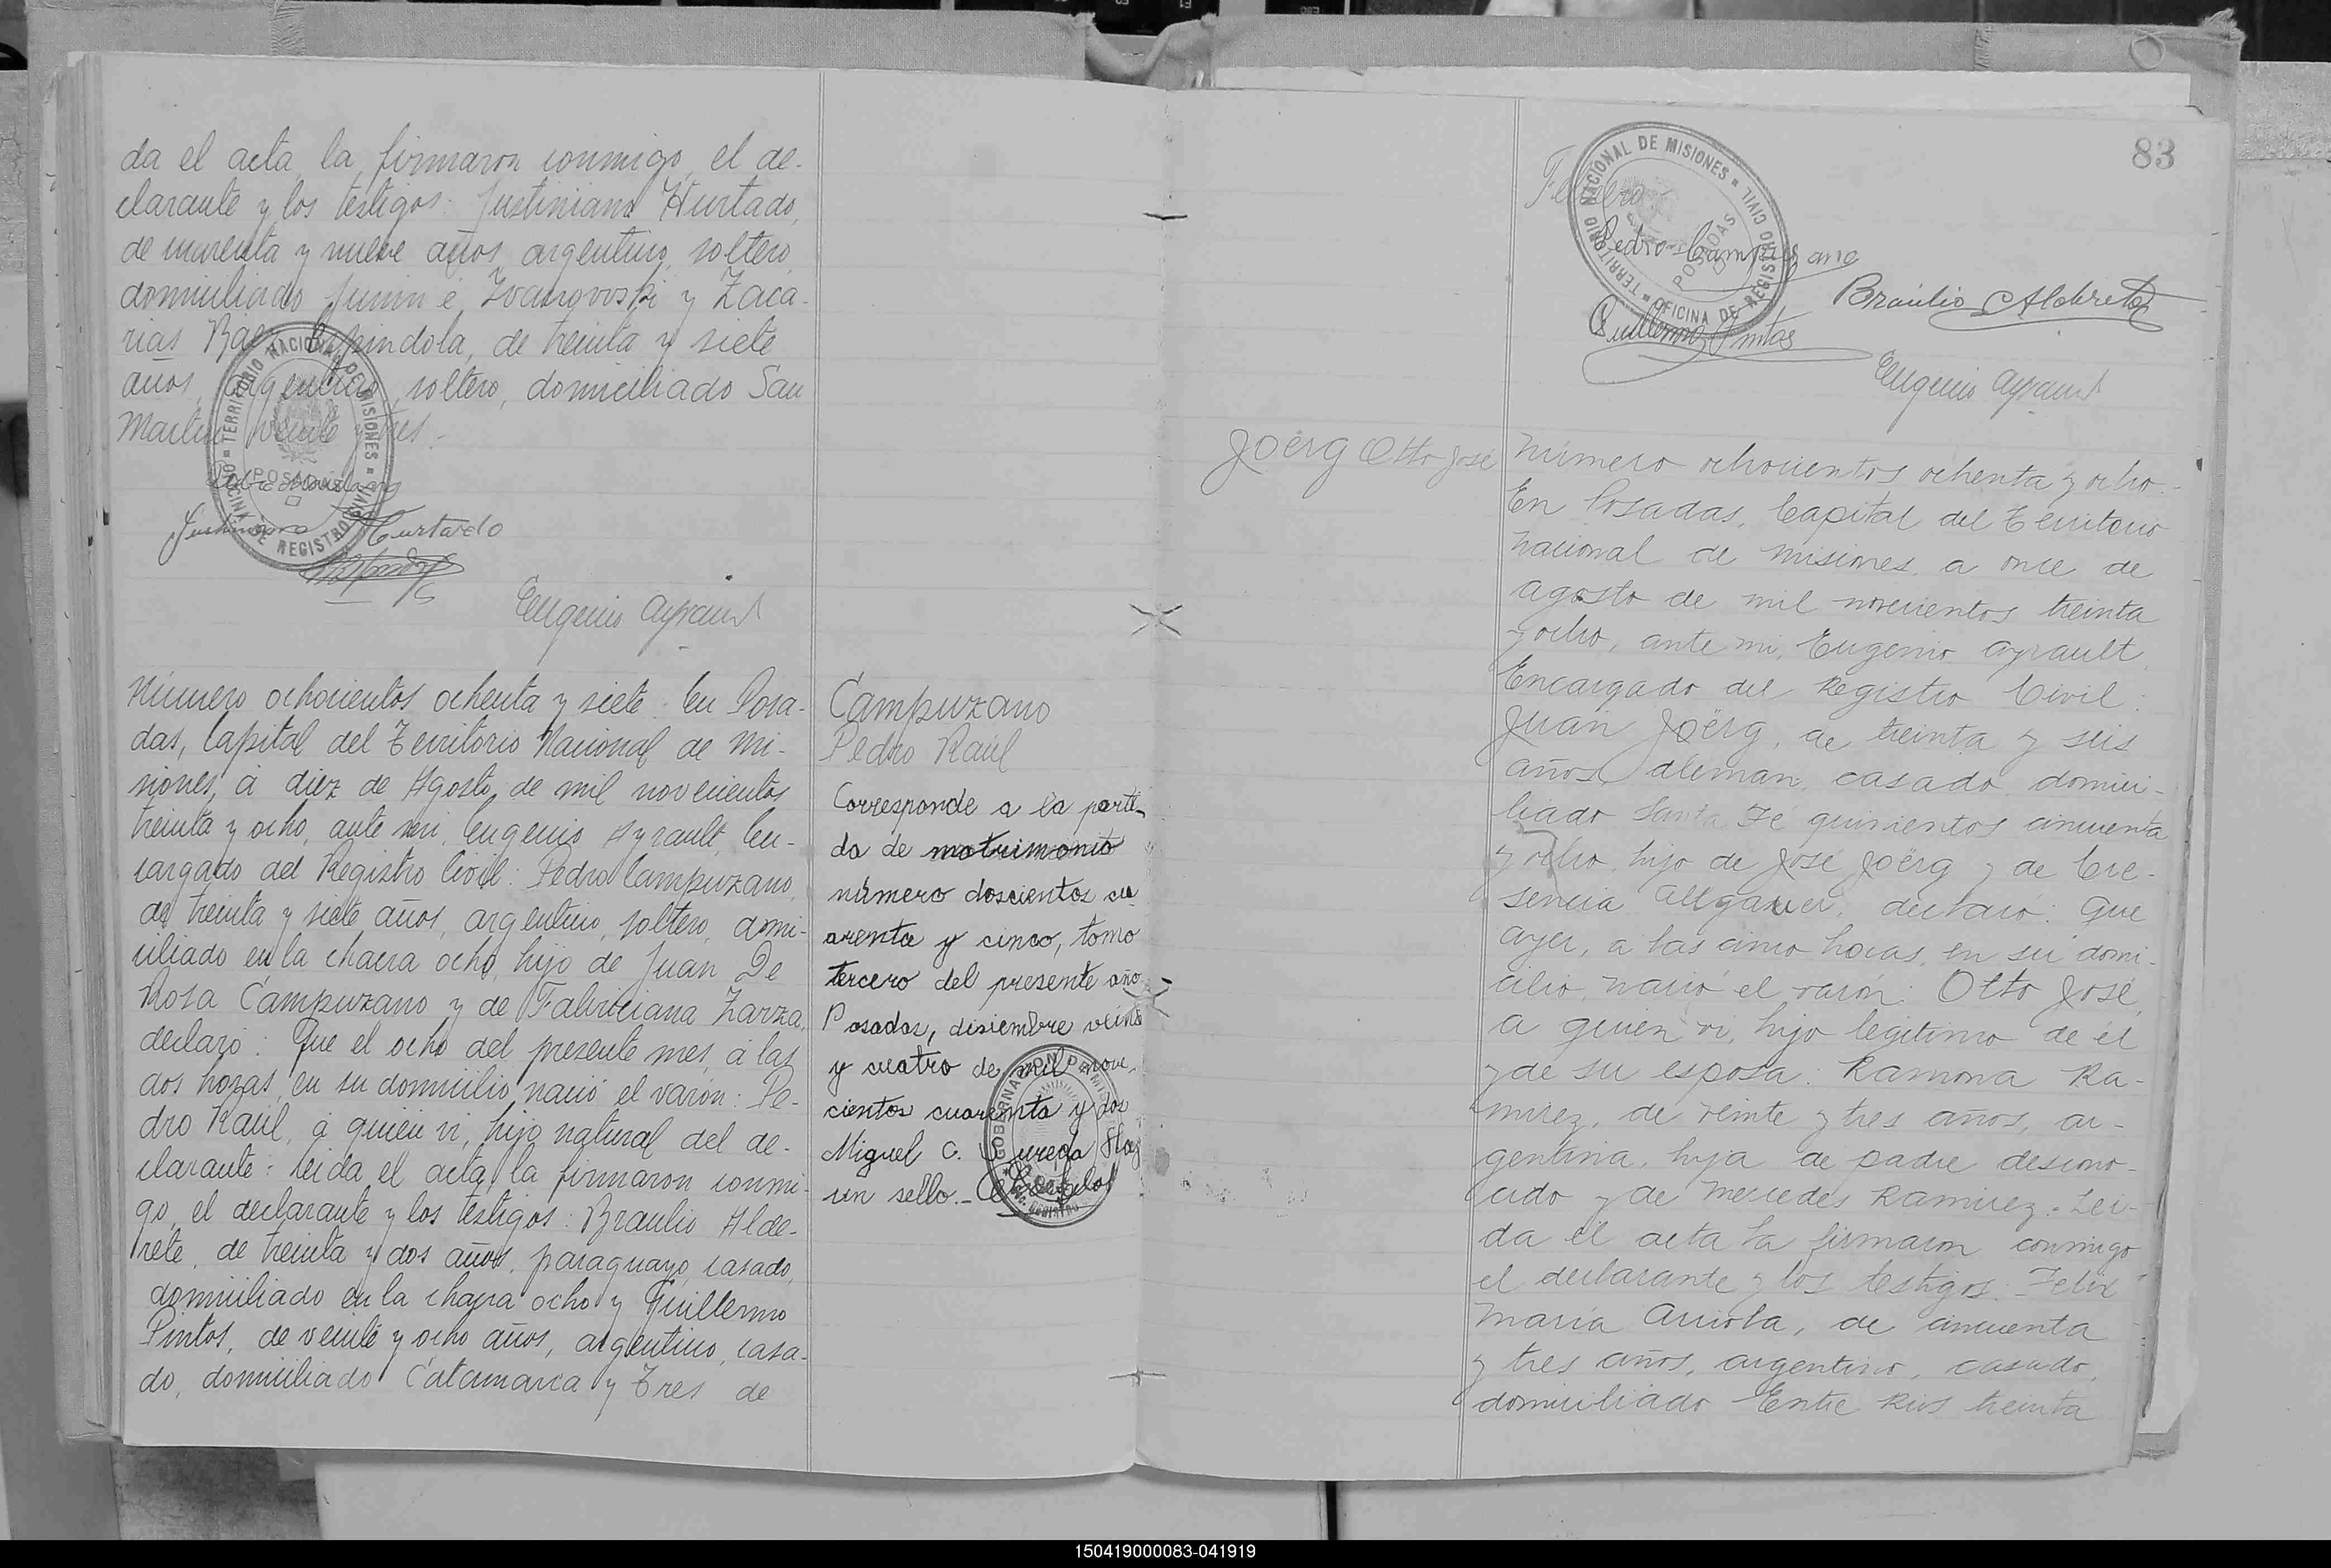 da el acta, la firmaron conmigo, el de-
clarante y los testigos: Justiniano Hurtado,
de cuarenta y nueve años, argentino, soltero,
domiciliado Junin é Ivanovoski y Zaca-
rias Espindola, de treinta y siete
años, argentino, soltero, domiciliado San
Martin veinte y tres.-
TERRITORIO NACIONAL DE MISIONES
OFICINA DE REGISTRO CIVIL
POSADAS
Justiniano Hurtado
Eugenio Ayrault
Número ochocientos ochenta y siete: En Posa-
das, Capital del Territorio Nacional de Mi-
siones, á diez de Agosto, de mil novecientos
treinta y ocho, ante mi, Eugenio Ayrault, En-
cargado del Registro Civil: Pedro Campuzano,
de treinta y siete años, argentino, soltero, domi-
ciliado en la chacra ocho, hijo de Juan De
Rosa Campuzano y de Fabriciana Zarza,
declaró: Que el ocho del presente mes, á las
dos horas, en su domicilio, nació el varón: Pe-
dro Raúl, á quien vi, hijo natural del de-
clarante: leida el acta, la firmaron conmi-
go, el declarante y los testigos: Braulio Alde-
rete, de treinta y dos años, paraguayo, casado,
domiciliado en la chacra ocho y Guillermo
Pintos, de veinte y ocho años, argentino, casa-
do, domiciliado Catamarca y Tres de
Campuzano
Pedro Raúl
Corresponde a la parti-
da de matrimonio
número doscientos cu
arenta y cinco, tomo
tercero del presente año
Posadas, diciembre veinte
y cuatro de mil nove.
cientos cuarenta y dos
Miguel C. Ureda Hay
un sello.-
83
Febrero
TERRITORIO NACIONAL DE MISIONES
OFICINA DE REGISTRO CIVIL
POSADAS
Pedro Campuzano
Braulio Alderete
Guillermo Pintos
Eugenio Ayrault
Joërg Otto José
Número ochocientos ochenta y ocho.-
En Posadas, Capital del Territorio
Nacional de Misiones, a once de
agosto de mil novecientos treinta
y ocho, ante mi, Eugenio Ayrault,
Encargado del Registro Civil:
Juan Joërg, de treinta y seis
años, aleman, casado, domici-
liado Santa Fe quinientos cincuenta
y ocho, hijo de José Joërg y de Cre-
sencia Allgauer, declaró: Que
ayer, a las cinco horas, en su domi-
cilio, nació el varón: Otto José,
a quien vi, hijo legitimo de él
y de su esposa: Ramona Ra-
mirez, de veinte y tres años, ar-
gentina, hija de padre descono-
cido y de Mercedes Ramirez.- Lei-
da el acta la firmaron conmigo
el declarante y los testigos: Felix
Maria Arriola, de cincuenta
y tres años, argentino, casado,
domiciliado Entre Rios treinta
150419000083-041919